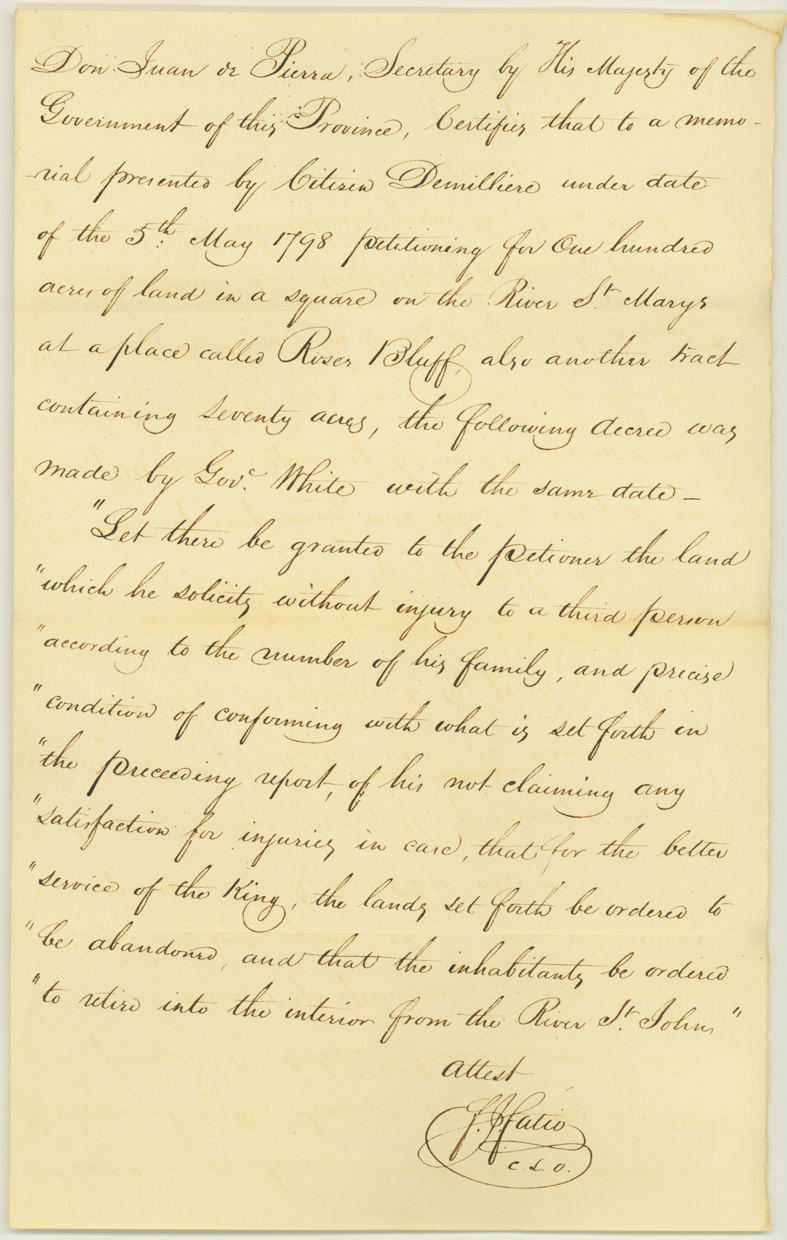 Don Juan de Pierra, Secretary by His Majesty of the
Government of this Province, Certifies that to a memo-
-rial presented by Citizen Demilliere under date
of the 5th. May 1798 petitioning for One hundred
acres of land in a square on the River St. Marys
at a place called Roses Bluff, also another tract
containing seventy acres, the following decree was
made by Govr. White with the same date -
"Let there be granted to the petioner the land
"which he solicits without injury to a third person
"according to the number of his family, and precise
"condition of conforming with what is set forth in
"the preceeding report, of his not claiming any
"satisfaction for injuries in case, that for the better
"service of the King, the lands set forth be ordered to
"be abandoned, and that the inhabitants be ordered
"to retire into the interior from the River St. Johns"
Attest
F. J. Fatio
C. L. O.